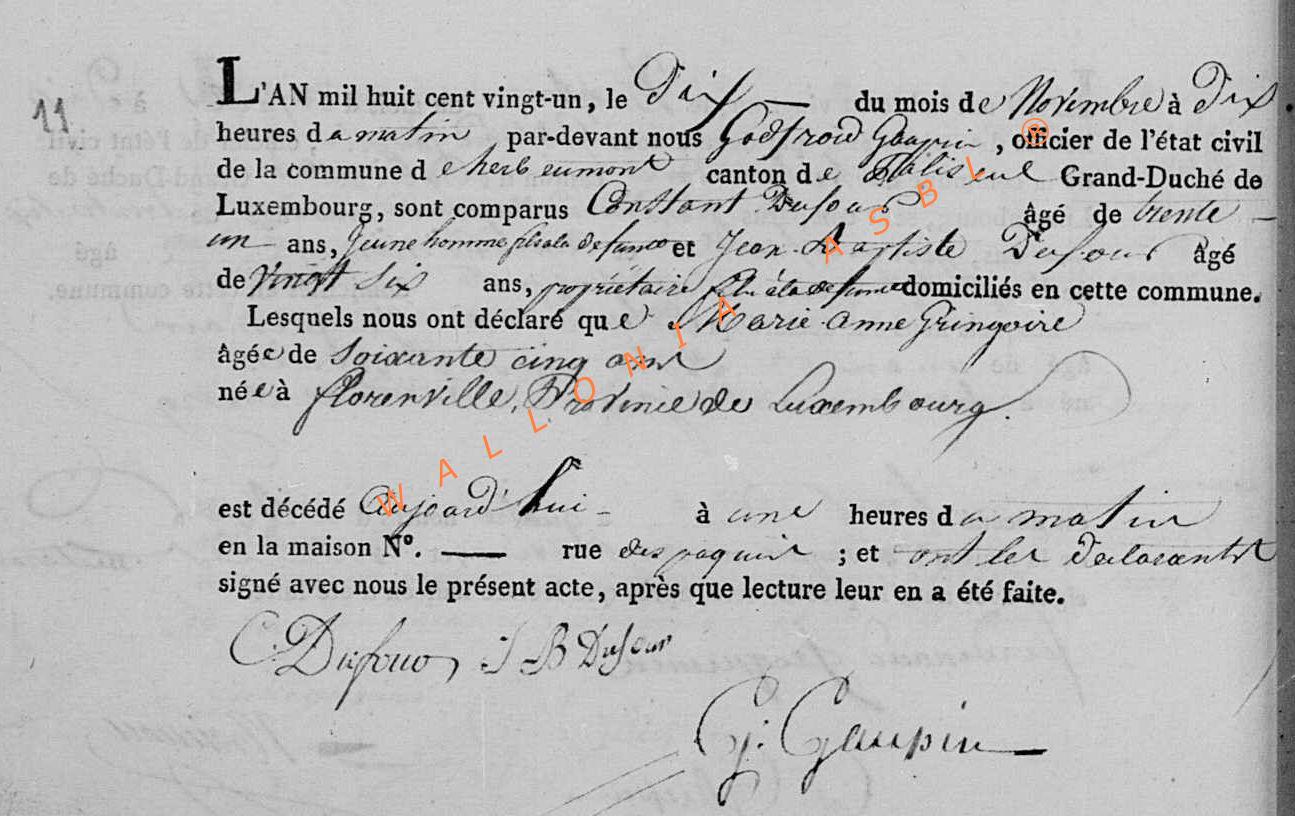 11
L'AN mil huit cent vingt-un, le Dix — du mois de Novembre à Dix
heures du matin par-devant nous Godfroid Goupin, officier de l'état civil
de la commune d'herbeumont canton de Paliseul Grand-Duché de
Luxembourg, sont comparus Constant Dufour âgé de trente —
un ans, Jeune homme fils à la defunte et Jean Baptiste Dufour âgé
de Vingt Six ans, propriétaire fils à la defunte domiciliés en cette commune.
Lesquels nous ont déclaré que Marie anne Gringoire
âgée de Soixante cinq ans
née à florenville, Province de Luxembourg.
est décédé Aujourd'hui — à une heures du matin
en la maison N°. — rue des paquis ; et ont les Declarants
signé avec nous le présent acte, après que lecture leur en a été faite.
C. Dufour J B Dufour
G. Goupin
WALLONIA ASBL ®